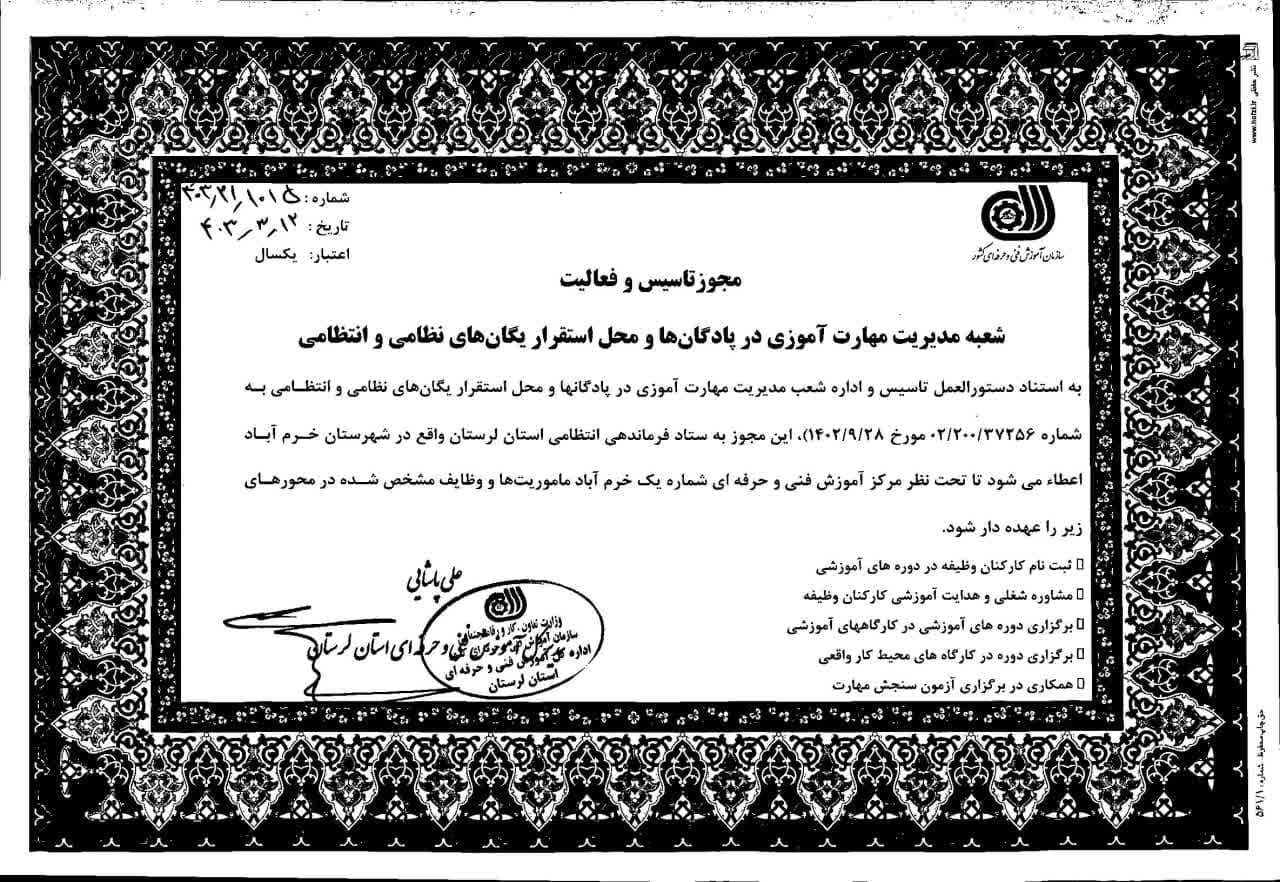 سازمان آموزش فنی و حرفه‌ای کشور
شماره:
تاریخ: ۴۰۳٫۳٫۱۲
اعتبار: یکسال
مجوز تاسیس و فعالیت
شعبه مدیریت مهارت آموزی در پادگان‌ها و محل استقرار یگان‌های نظامی و انتظامی
به استناد دستورالعمل تاسیس و اداره شعب مدیریت مهارت آموزی در پادگانها و محل استقرار یگان‌های نظامی و انتظامی به
شماره ۰۲/۲۰۰/۳۷۲۵۶ مورخ ۱۴۰۲/۹/۲۸)، این مجوز به ستاد فرماندهی انتظامی استان لرستان واقع در شهرستان خرم آباد
اعطاء می شود تا تحت نظر مرکز آموزش فنی و حرفه ای شماره یک خرم آباد ماموریت‌ها و وظایف مشخص شده در محورهای
زیر را عهده دار شود.
ثبت نام کارکنان وظیفه در دوره های آموزشی
مشاوره شغلی و هدایت آموزشی کارکنان وظیفه
برگزاری دوره های آموزشی در کارگاههای آموزشی
برگزاری دوره در کارگاه های محیط کار واقعی
همکاری در برگزاری آزمون سنجش مهارت
علی پاشایی
فنی و حرفه ای استان لرستان
وزارت تعاون، کار و رفاه اجتماعی
سازمان آموزش فنی و حرفه ای
اداره کل آموزش فنی و حرفه ای
استان لرستان
نشر هفتی www.hafzi.ir
حق چاپ محفوظ. شماره: ۵۶۱/۱